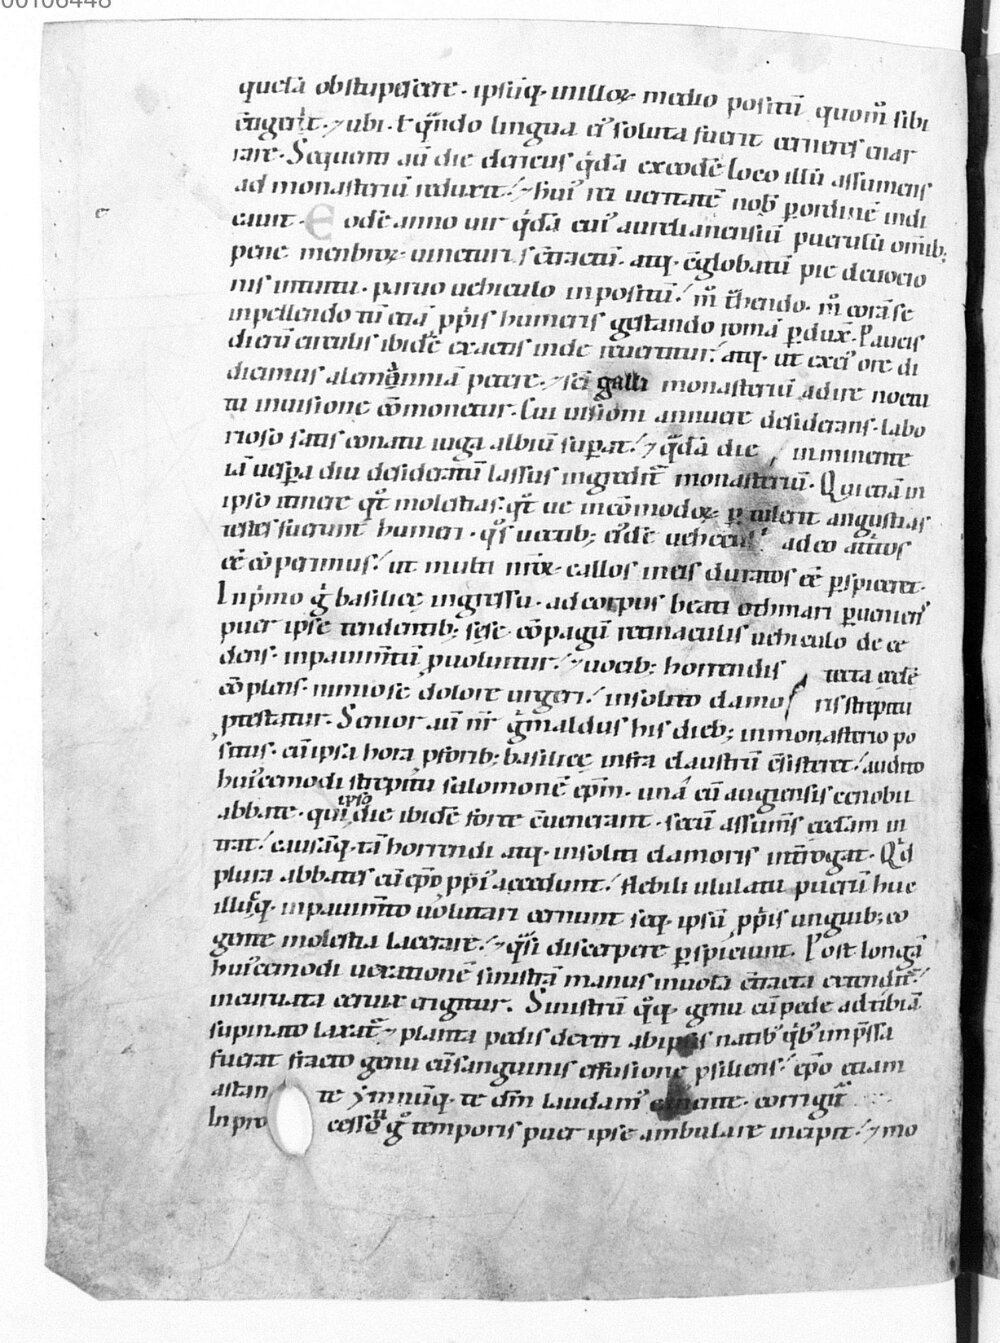 00106448
quelā obstupescere. ipsūq. in illoꝝ medio positū quom̄ sibi
ↄtigerit. ⁊ ubi. ł q̄ndo lingua ei' soluta fuerit cerneres enar
rare. Sequenti aū die clericus q̇dā ex eodē loco illū assumens
ad monasteriū reduxit! ⁊ hui' rei ueritatē nob' ꝑ ordinē indi
cauit. Eodē anno uir q̇dā cui' aurelianensiū puerulū om̄ib;
pene menbroꝝ iuncturis ↄtractū. atq. ↄglobatū pie deuocio
nis intuitu. paruo uehiculo inpositū! m̊ t̃hendo. m̊ corā se
inpellendo tū etiā ꝓp̄is humeris gestando romā ꝑdux̄. Paucis
dierū circulis ibidē exactis inde reuertitur! atq. ut ex ei' ore di
dicimus alemānniā petere. ⁊ sc̄i galli monasteriū adire noctu
tu in uisione cōmonetur. Cui uisioni annuere desiderans. labo
rioso satis conatu iuga albiū suꝑat! ⁊ q̄dā die inminente
iā uesꝑa diu desideratū lassus ingredit̄ monasteriū. Qui etiā in
ipso itinere q̄t molestias. q̄t ue incōmodoꝝ ꝑtulerit angustias
testes fuerunt humeri. q̊s uectib; ei'dē uehiculi adeo attritos
eē cōperimus! ut multi m̄x callos in eis duratos eē ꝑspicerent.
In p̄mo g̊ basilicę ingressu. ad corpus beati othmari ꝑueniens
puer ipse tendentib; sese cōpagū retinaculis uehiculo dece
dens. in pauim̄tū ꝓuoluitur! ⁊ uocib; horrendis tecta ędē
cōplens. nimio se dolore urgeri! insolito clamoris strepitu
ptestatur. Senior aū nr̄ g̊maldus his dieb; in monasterio po
situs. cū ipsa hora p̄forib; basilicę infra claustrū ↄsisteret! audito
hui'cemodi strepitu salomonē ep̄m. unā cū augiensis cenobii
abbate. qui ipso die ibidē forte ↄuenerant. secū assum̄s ęcclam in
trat! causāq. tā horrendi atq. insoliti clamoris int̄rogat. Q'd
plura abbates cū ep̄o ꝓp̄i' accedunt! flebili ululatu puerū huc
illucq. in pauim̄to uolutari cernunt seq. ipsū ꝓp̄is unguib; co
gente molestia lacerare! ⁊ q̄si discerpere ꝑspiciunt. Post longā
hui'cemodi uexationē sinistrā manus in uolā ↄtracta extendit̄!
incuruata ceruix erigitur. Sinistrū q̊q. genu cū pede ad tibiā
supinato laxat̄ ⁊ planta pedis dextri ab ipsis natib' q̇b' imp̄ssa
fuerat fracto genu cū sanguinis effusione ꝓsiliens! ep̄o etiam
astante ymnūq. te dm̄ laudam' canente. corrigit̄
In processu g̊ temporis puer ipse ambulare incipit! ⁊ mo